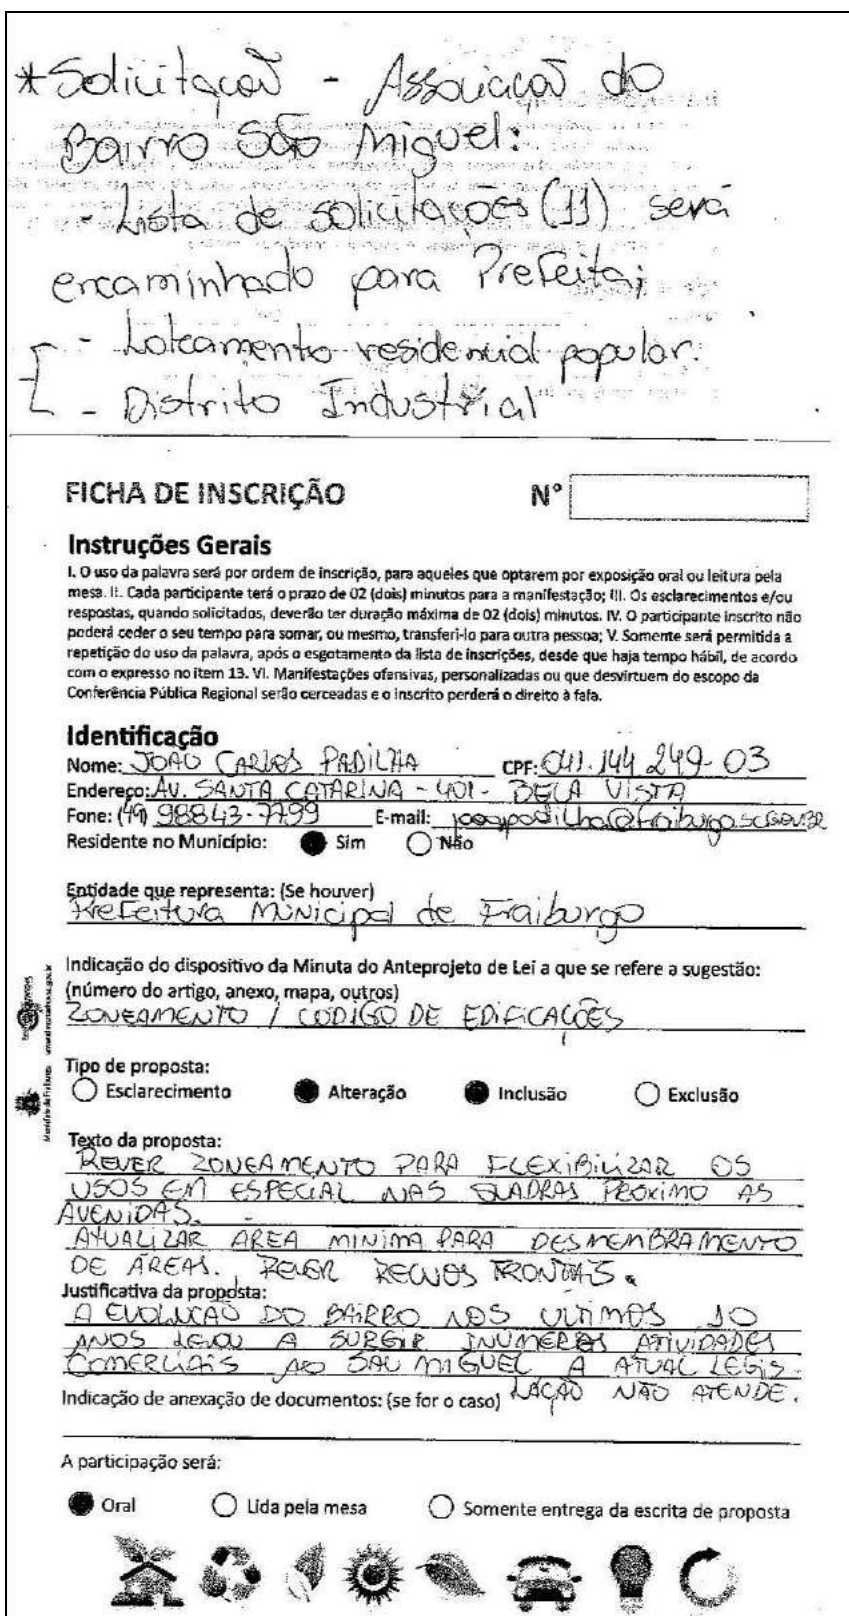 *Solicitação - Associação do
Bairro São Miguel:
- Lista de solicitações (11) será
encaminhado para Prefeita;
- Loteamento residencial popular.
- Distrito Industrial
FICHA DE INSCRIÇÃO Nº
Instruções Gerais
I. O uso da palavra será por ordem de inscrição, para aqueles que optarem por exposição oral ou leitura pela
mesa. II. Cada participante terá o prazo de 02 (dois) minutos para a manifestação; III. Os esclarecimentos e/ou
respostas, quando solicitados, deverão ter duração máxima de 02 (dois) minutos. IV. O participante inscrito não
poderá ceder o seu tempo para somar, ou mesmo, transferi-lo para outra pessoa; V. Somente será permitida a
repetição do uso da palavra, após o esgotamento da lista de inscrições, desde que haja tempo hábil, de acordo
com o expresso no item 13. VI. Manifestações ofensivas, personalizadas ou que desvirtuem do escopo da
Conferência Pública Regional serão cerceadas e o inscrito perderá o direito à fala.
Identificação
Nome: JOAO CARLOS PADILHA CPF: 041.144 249-03
Endereço: AV. SANTA CATARINA - 401 - BELA VISTA
Fone: (49) 98843-7799 E-mail: joaopadilha@fraiburgo.sc.gov.br
Residente no Município: Sim Não
Entidade que representa: (Se houver)
Prefeitura Municipal de Fraiburgo
Indicação do dispositivo da Minuta do Anteprojeto de Lei a que se refere a sugestão:
(número do artigo, anexo, mapa, outros)
ZONEAMENTO / CODIGO DE EDIFICAÇÕES
Tipo de proposta:
Esclarecimento Alteração Inclusão Exclusão
Texto da proposta:
REVER ZONEAMENTO PARA FLEXIBILIZAR OS
USOS EM ESPECIAL NAS QUADRAS PROXIMO AS
AVENIDAS.
ATUALIZAR AREA MINIMA PARA DESMEMBRAMENTO
DE ÁREAS. REVER RECUOS FRONTAIS.
Justificativa da proposta:
A EVOLUCAO DO BAIRRO NOS ULTIMOS 10
ANOS LEVOU A SURGIR INUMERAS ATIVIDADES
COMERCIAIS NO SAU MIGUEL A ATUAL LEGIS-
LAÇÃO NÃO ATENDE.
Indicação de anexação de documentos: (se for o caso)
A participação será:
Oral Lida pela mesa Somente entrega da escrita de proposta